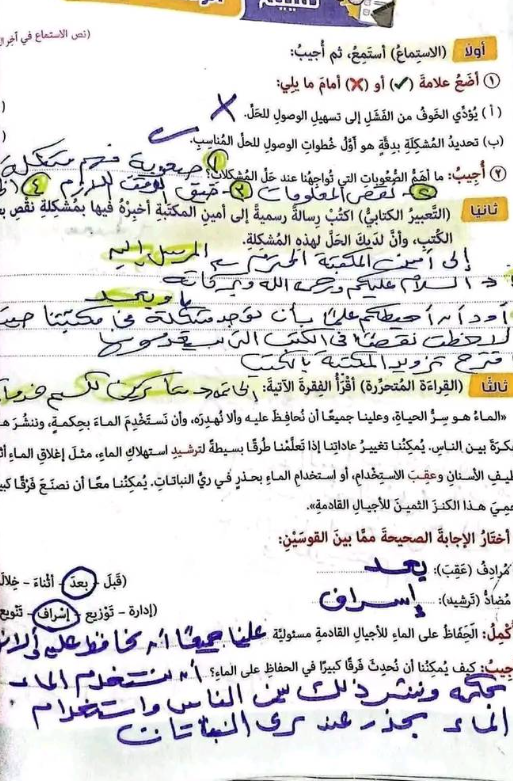 (نص الاستماع في آخر
أولًا (الاستماعُ) أستَمِعُ، ثم أُجيبُ:
① أضَعُ علامةَ (✓) أو (✗) أمامَ ما يلِي:
(أ) يُؤدِّي الخَوفُ من الفَشَلِ إلى تسهيلِ الوصولِ للحَلِّ. ✗
(ب) تحديدُ المُشكِلَةِ بدِقَّةٍ هو أوَّلُ خُطواتِ الوصولِ للحلِّ المُناسِبِ. ✓
① صعوبة فهم مشكلة
② أُجيبُ: ما أهَمُّ الصُّعوباتِ التي تُواجِهُنا عند حَلِّ المُشكلاتِ؟
② نقص المعلومات ③ ضيق الوقت اللازم ④
ثانيًا (التَّعبيرُ الكتابيُّ) اكتُبْ رِسالةً رسميةً إلى أمينِ المكتبةِ أخبِرْهُ فيها بمُشكلةِ نقْصِ
الكُتبِ، وأنَّ لدَيكَ الحَلَّ لهذه المُشكِلةِ.
إلى أمين المكتبة المحترم المرسل إليه
السلام عليكم ورحمة الله وبركاته
وبعد
أود أن أحيطكم علمًا بأن توجد مشكلة في مكتبتنا حيث
لاحظت نقصًا في الكتب التي
اقترح تزويد المكتبة بالكتب
ثالثًا (القراءةُ المُتحرِّرة) أقْرَأُ الفِقرةَ الآتيةَ:
«الماءُ هو سِرُّ الحياةِ، وعلينا جميعًا أن نُحافِظَ عليه وألا نُهدِرَه، وأن نَستَخْدِمَ الماءَ بحِكمةٍ، وننشُرَ
بين الناسِ. يُمكِنُنا تغييرُ عاداتِنا إذا تَعلَّمْنا طُرقًا بسيطةً لترشيدِ استهلاكِ الماءِ، مثلَ إغلاقِ الماءِ
الأسنانِ وعقِبَ الاستِخْدامِ، أو استخدامِ الماءِ بحذرٍ في ريِّ النباتاتِ. يُمكِنُنا معًا أن نصنَعَ فَرْقًا
هذا الكنزَ الثمينَ للأجيالِ القادمةِ».
أختارُ الإجابةَ الصحيحةَ ممَّا بينَ القوسَيْنِ:
مُرادِفُ (عَقِبَ): بعد (قَبلَ - بعدَ - أثناءَ - خِلالَ
مُضادُّ (ترشيد): إسراف (إدارة - تَوْزيع - إسْراف - تَنْويع
الحِفَاظُ على الماءِ للأجيالِ القادمةِ مسئوليَّةُ علينا جميعًا أن نحافظ عليه وألا
كيف يمكنُنا أن نُحدِثَ فَرقًا كبيرًا في الحفاظِ على الماءِ؟ أن نستخدم الماء
بحكمة وننشر ذلك بين الناس واستخدام
الماء بحذر عند ري النباتات